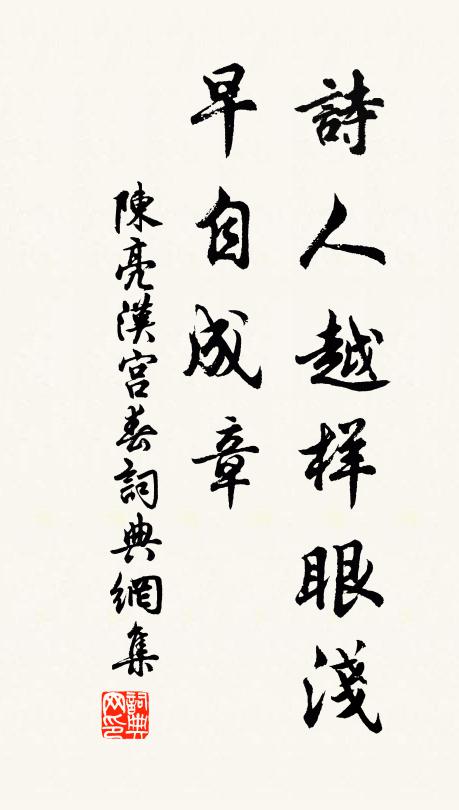 詩人越样眼淺
早自成章
陳亮漢宫春詞典網集
詞典网印